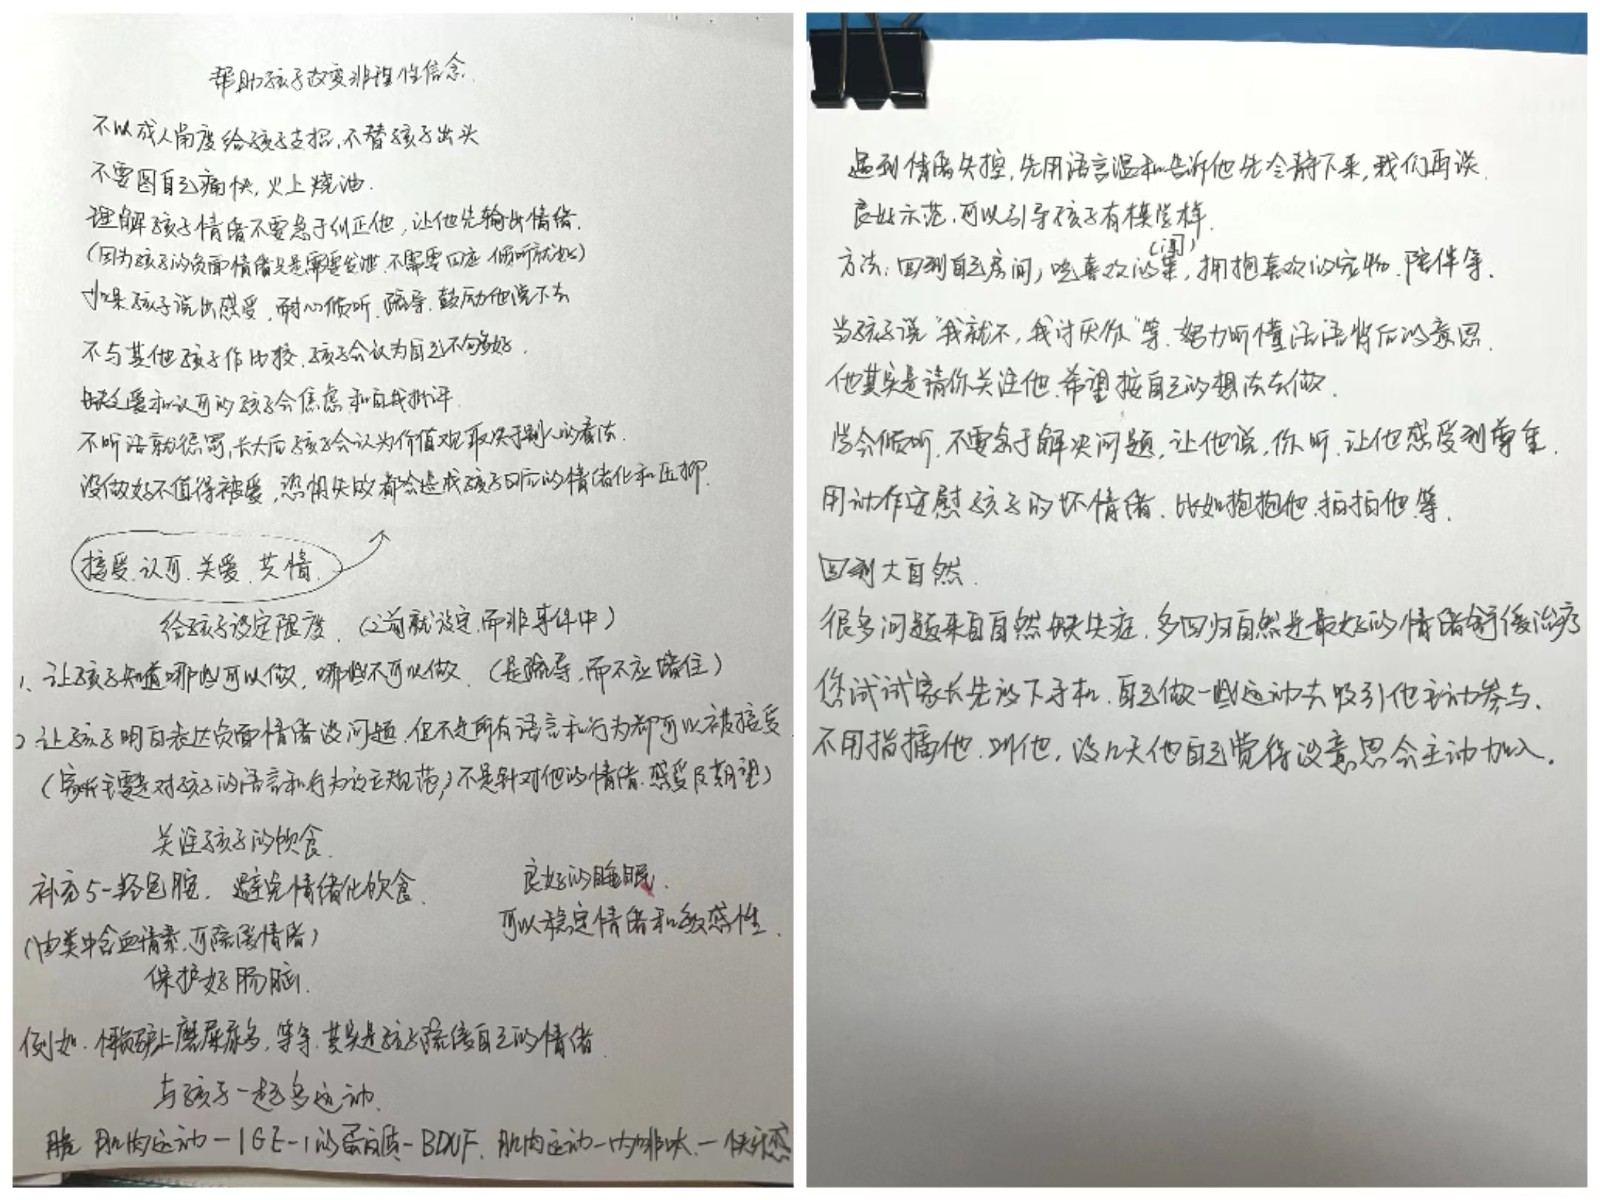 帮助孩子改变非理性信念.
不以成人角度给孩子支招,不替孩子出头
不要图自己痛快,火上烧油.
理解孩子情绪不要急于纠正他,让他先输出情绪.
(因为孩子的负面情绪只是需要发泄.不需要回应 倾听就好)
如果孩子说出感受,耐心倾听.疏导.鼓励他说下去
不与其他孩子作比较.孩子会认为自己不够好.
缺乏爱和认可的孩子会焦虑和自我批评.
不听话就惩罚,长大后孩子会认为价值观取决于别人的看法.
没做好不值得被爱,恐惧失败都会造成孩子日后的情绪化和压抑.
接受.认可.关爱.共情.
给孩子设定限度.(之前就设定.而非事件中)
1、让孩子知道哪些可以做,哪些不可以做.(是疏导,而不应堵住)
2 让孩子明白表达负面情绪没问题.但不是所有语言和行为都可以被接受
(家长主要是对孩子的语言和行为设立规范,不是针对他的情绪.感受及期望)
关注孩子的饮食.
补充5-羟色胺.避免情绪化饮食.
良好的睡眠.
可以稳定情绪和敏感性.
(鱼类中含血清素.可 情绪)
保护好肠脑.
例如. 上磨 屎尿多,等等.其实是孩子 缓自己的情绪.
与孩子一起多运动.
肌肉运动-IGE-1的蛋白质-BDNF.肌肉运动-内啡肽-快乐感
遇到情绪失控,先用语言温和告诉他先冷静下来,我们再谈.
良好示范.可以引导孩子有模学样.
方法:回到自己房间,吃喜欢的果,拥抱喜欢的宠物.陪伴等.
当孩子说"我就不,我讨厌你"等.努力听懂话语背后的意思.
他其实是请你关注他.希望按自己的想法去做.
学会倾听.不要急于解决问题,让他说,你听.让他感受到尊重.
用动作安慰孩子的坏情绪.比如抱抱他.拍拍他.等.
回到大自然.
很多问题来自自然缺失症.多回归自然是最好的情绪舒缓治疗
您试试家长先放下手机.自己做一些运动去吸引他主动参与.
不用指擂他.叫他,没几天他自己觉得没意思会主动加入.